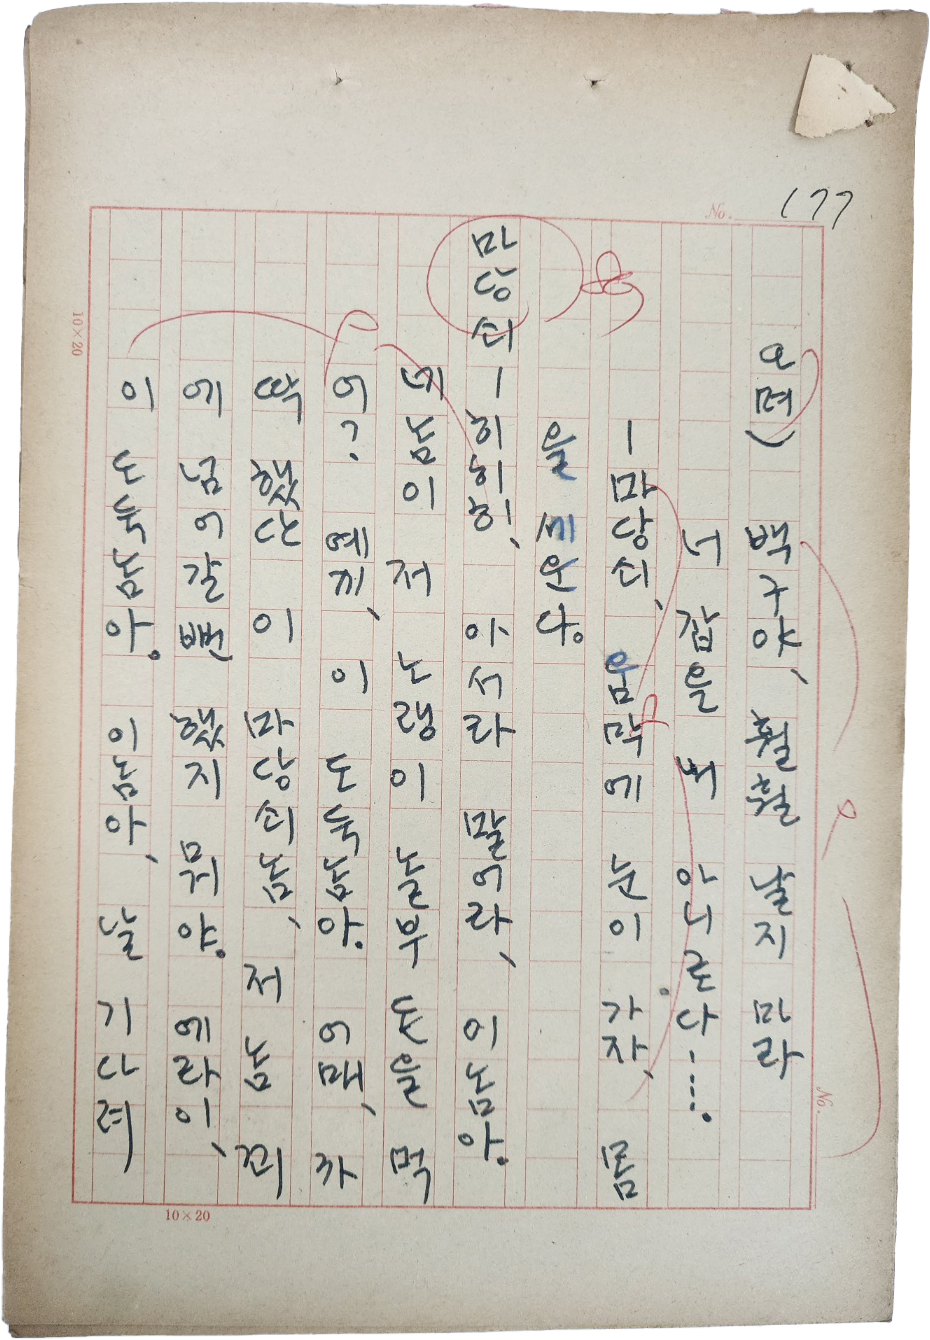 177
No.
으며) 백구야, 훨훨 날지 마라
너 잡을 내 아니로다……
―마당쇠, 움막에 눈이 가자, 몸
을 세운다.
마당쇠―히히히!, 아서라 말어라, 이놈아.
네놈이 저 노랭이 놀부 돗을 먹
어? 예끼, 이 도둑놈아. 어매, 까
딱 했단 이 마당쇠놈, 저놈 꾀
에 넘어갈 뻔 했지 뭐야. 에라이,
이 도둑놈아. 이놈아, 날 기다려
10×20
10×20
No.